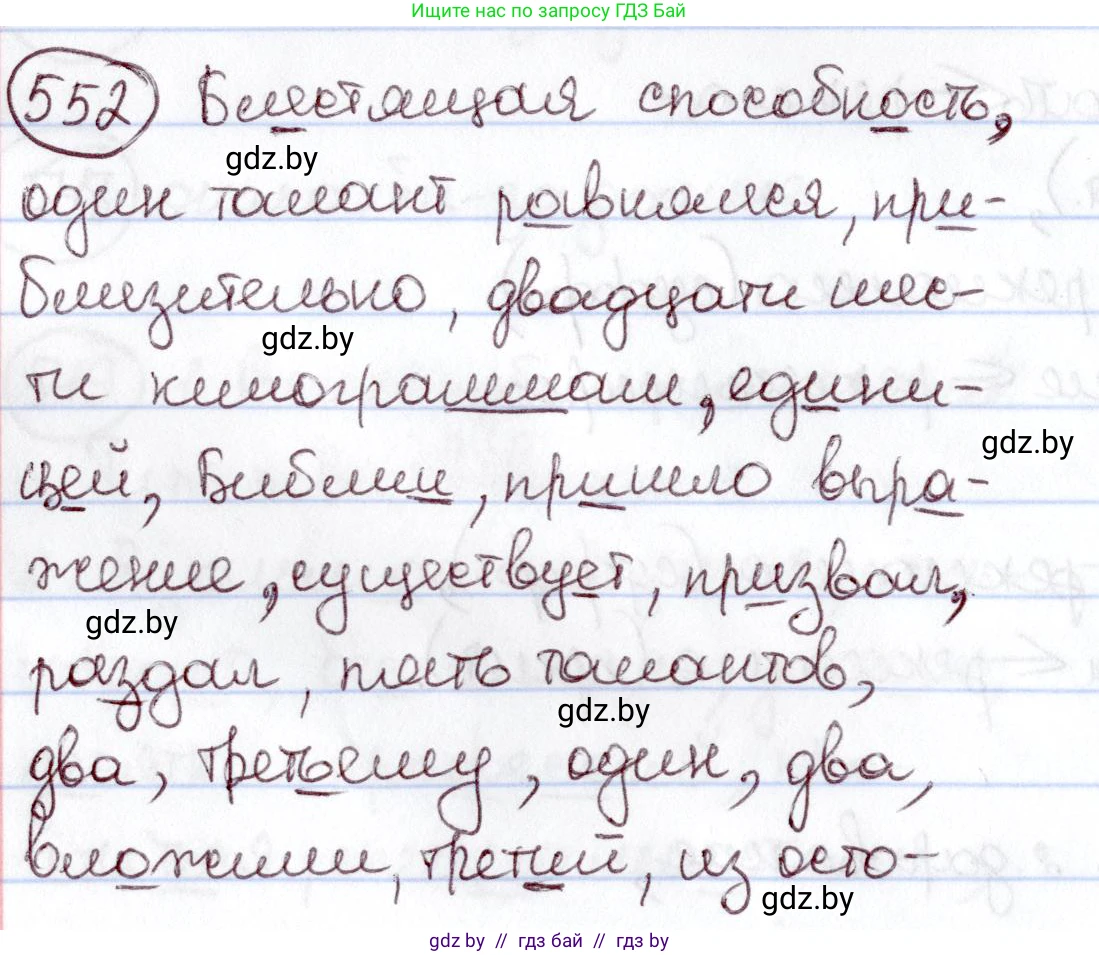 Ищите нас по запросу ГДЗ Бай
552 Блестящая способность,
gdz.by
один талант равнялся, при-
близительно, двадцати шес-
gdz.by
ти килограммам, едини-
gdz.by
цей, Библии, пришло выра-
жение, существует, призвал,
gdz.by
раздал, пять талантов,
gdz.by
два, третьему, один, два,
вложили, третий, из осто-
gdz.by
gdz.by // гдз бай // гдз by